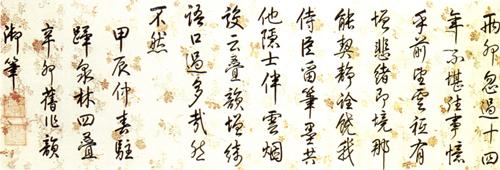 兩卯忽過十四
年不堪往事憶
于前望雲祗有
增悲緒即境那
能契靜詮饒我
侍臣留筆墨共
他隱士伴雲烟
設云疊韻增綺
語口過多哉然
不然
甲辰仲春駐
蹕泉林四疊
辛卯舊作韻
御筆